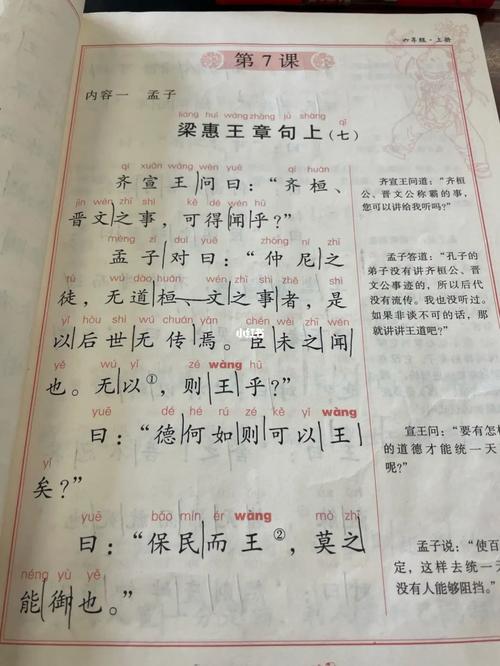 六年级·上册
第7课
内容一 孟子
liáng huì wáng zhāng jù shàng qī
梁惠王章句上（七）
qí xuān wáng wèn yuē qí huán
齐宣王问曰：“齐桓、
jìn wén zhī shì kě dé wén hū
晋文之事，可得闻乎？”
mèng zǐ duì yuē zhòng ní zhī
孟子对曰：“仲尼之
tú wú dào huán wén zhī shì zhě shì
徒，无道桓文之事者，是
yǐ hòu shì wú chuán yān chén wèi zhī wén
以后世无传焉。臣未之闻
yě wú yǐ zé wàng hū
也。无以①，则王乎？”
yuē dé hé rú zé kě yǐ wàng
曰：“德何如则可以王
yǐ
矣？”
yuē bǎo mín ér wàng mò zhī
曰：“保民而王②，莫之
néng yù yě
能御也。”
齐宣王问道：“齐桓
公、晋文公称霸的事，
您可以讲给我听吗？”
孟子答道：“孔子的
弟子没有讲齐桓公、晋
文公事迹的，所以后代
没有流传。我也没听过。
如果非谈不可的话，那
就讲讲王道吧？”
宣王问：“要有怎样
的道德才能统一天
呢？”
孟子说：“使百
定，这样去统一天
没有人能够阻挡。”
小红书